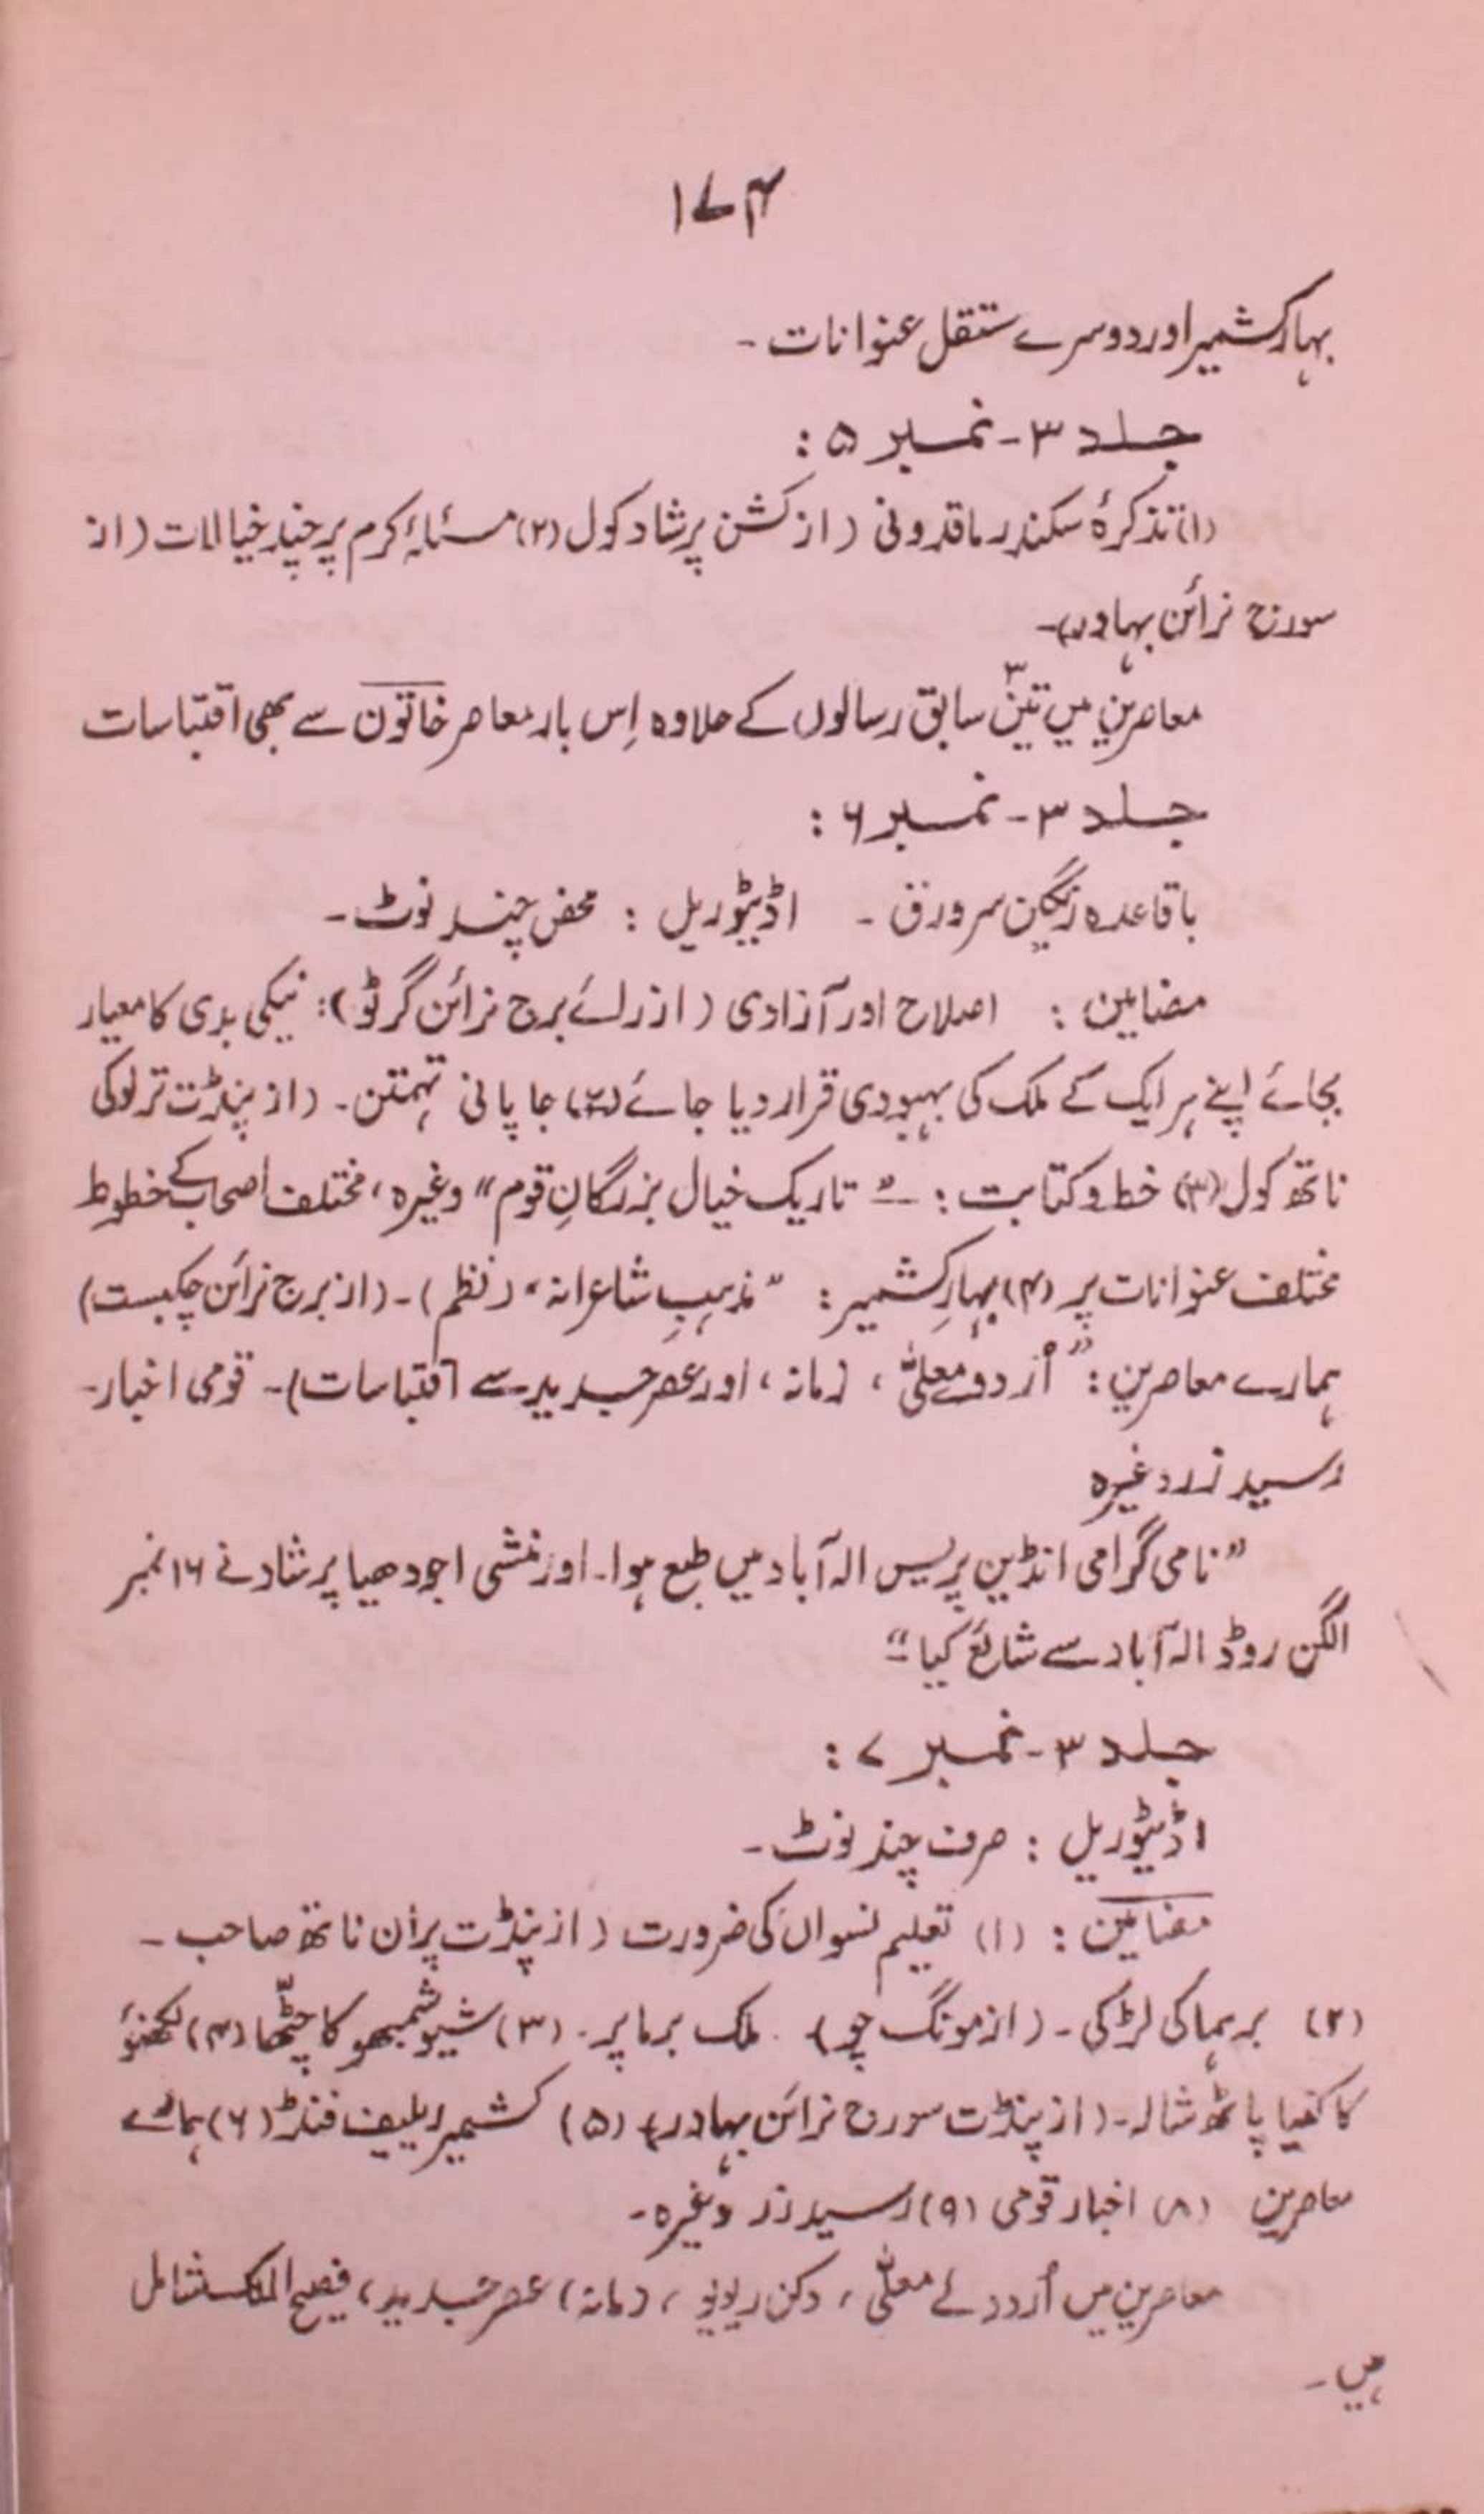 ۱۷۴
بہار کشمیر اور دوسرے مستقل عنوانات ۔
جلد ۳ - نمبر ۵ :
(۱) تذکرۂ سکندر ماقدونی (از کشن پرشاد کول (۲) مسئلۂ کرم پر چند خیالات (از
سورج نرائن بہادر)۔
معاصرین میں تین۳ سابق رسالوں کے علاوہ اِس بار معاصر خاتون سے بھی اقتباسات
جلد ۳ - نمبر ۶ :
باقاعدہ رنگین سرورق ۔ اڈیٹوریل : محض چند نوٹ ۔
مضامین : اصلاح اور آزادی (از رائے برج نرائن گرٹو) : نیکی بدی کا معیار
بجائے اپنے ہر ایک کے ملک کی بہبودی قرار دیا جائے (۲) جاپانی تہمتن ۔ (از پنڈت ترلوکی
ناتھ کول (۳) خط و کتابت : ۔ " تاریک خیال بزرگانِ قوم " وغیرہ ، مختلف اصحاب کے خطوط
مختلف عنوانات پر (۴) بہارِ کشمیر : " مذہبِ شاعرانہ " (نظم) ۔ (از برج نرائن چکبست)
ہمارے معاصرین : " اُردوے معلّٰی ، زمانہ ، اور عصر جدید سے اقتباسات) ۔ قومی اخبار۔
رسید زر وغیرہ
" نامی گرامی انڈین پریس الہ آباد میں طبع ہوا ۔ اور منشی اجودھیا پرشاد نے ۱۶ نمبر
الگن روڈ الہ آباد سے شائع کیا "۔
جلد ۳ - نمبر ۷ :
اڈیٹوریل : صرف چند نوٹ ۔
مضامین : (۱) تعلیم نسواں کی ضرورت (از پنڈت پران ناتھ صاحب ۔
(۲) برہما کی لڑکی ۔ (از مونگ چو) . ملک برما پر ۔ (۳) شیو شمبھو کا چٹّھا (۴) لکھنؤ
کا کنیا پاٹھ شالہ ۔ (از پنڈت سورج نرائن بہادر) (۵) کشمیر ریلیف فنڈ (۶) ہمارے
معاصرین (۸) اخبار قومی (۹) رسید زر وغیرہ ۔
معاصرین میں اُردوئے معلّٰی ، دکن ریویو ، زمانہ ، عصر جدید ، فصیح الملک شامل
ہیں ۔